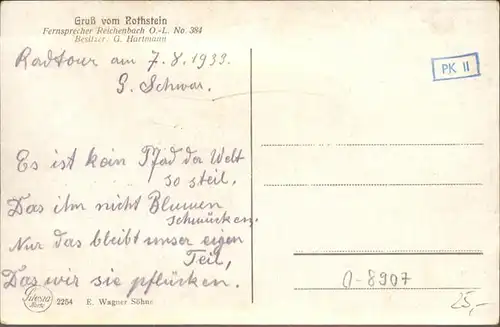 Gruß vom Rothstein
Fernsprecher Reichenbach O.-L. No. 384
Besitzer: G. Hartmann
Radtour am 7.8.1933.
G. Schwar.
PK II
Es ist kein Pfad der Welt
so steil,
Das ihn nicht Blumen
schmücken.
Nur das bleibt unser eigen
Teil,
Das wir sie pflücken.
0-8907
25,-
2254 E. Wagner Söhne